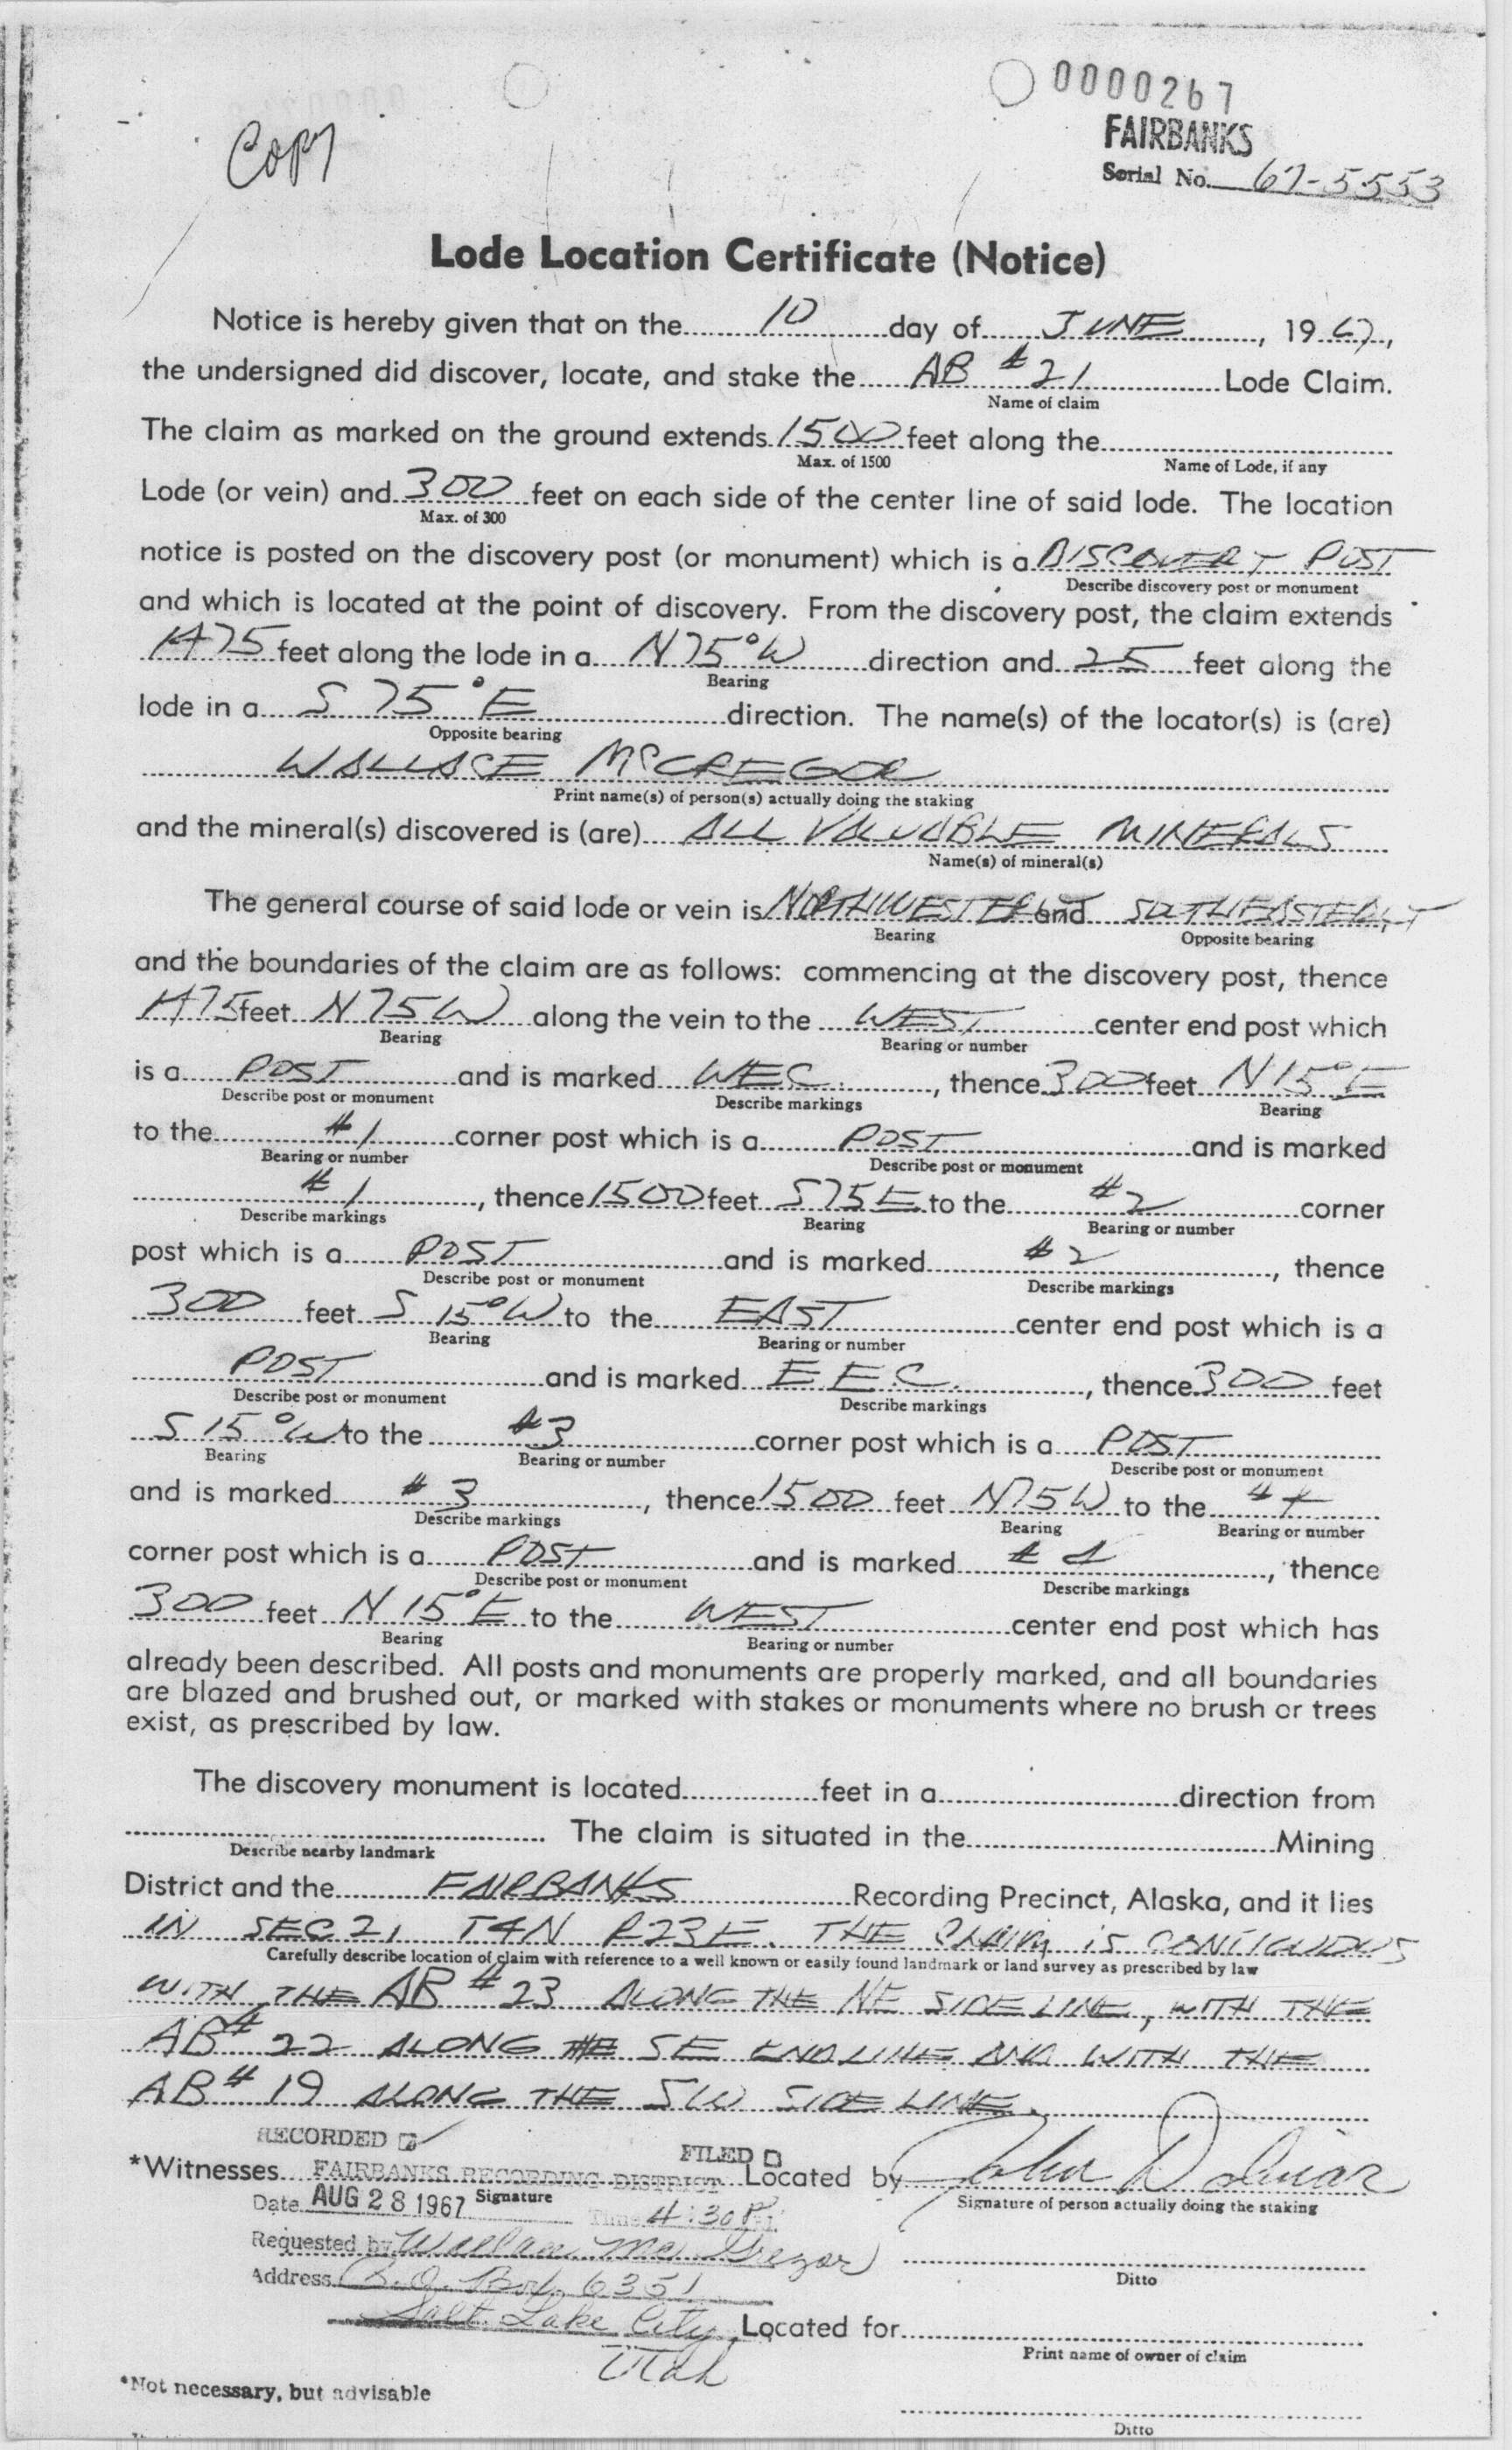 0000267
FAIRBANKS
Copy
Serial No. 67-5553
Lode Location Certificate (Notice)
Notice is hereby given that on the 10 day of JUNE, 1967,
the undersigned did discover, locate, and stake the AB #21 Lode Claim.
Name of claim
The claim as marked on the ground extends 1500 feet along the
Max. of 1500 Name of Lode, if any
Lode (or vein) and 300 feet on each side of the center line of said lode. The location
Max. of 300
notice is posted on the discovery post (or monument) which is a DISCOVERY POST
Describe discovery post or monument
and which is located at the point of discovery. From the discovery post, the claim extends
1475 feet along the lode in a N75°W direction and 25 feet along the
Bearing
lode in a S 75° E direction. The name(s) of the locator(s) is (are)
Opposite bearing
WALLACE McGREGOR
Print name(s) of person(s) actually doing the staking
and the mineral(s) discovered is (are) ALL VALUABLE MINERALS
Name(s) of mineral(s)
The general course of said lode or vein is NORTHWESTERLY and SOTHEASTERLY
Bearing Opposite bearing
and the boundaries of the claim are as follows: commencing at the discovery post, thence
1475 feet N75W along the vein to the WEST center end post which
Bearing Bearing or number
is a POST and is marked WEC., thence 300 feet N15°E
Describe post or monument Describe markings Bearing
to the #1 corner post which is a POST and is marked
Bearing or number Describe post or monument
#1, thence 1500 feet S75E to the #2 corner
Describe markings Bearing Bearing or number
post which is a POST and is marked #2, thence
Describe post or monument Describe markings
300 feet S 15°W to the EAST center end post which is a
Bearing Bearing or number
POST and is marked E.E.C., thence 300 feet
Describe post or monument Describe markings
S 15°W to the #3 corner post which is a POST
Bearing Bearing or number Describe post or monument
and is marked #3, thence 1500 feet N75W to the #4
Describe markings Bearing Bearing or number
corner post which is a POST and is marked #4, thence
Describe post or monument Describe markings
300 feet N 15°E to the WEST center end post which has
Bearing Bearing or number
already been described. All posts and monuments are properly marked, and all boundaries
are blazed and brushed out, or marked with stakes or monuments where no brush or trees
exist, as prescribed by law.
The discovery monument is located feet in a direction from
The claim is situated in the Mining
Describe nearby landmark
District and the FAIRBANKS Recording Precinct, Alaska, and it lies
IN SEC 21, T4N R23E. THE CLAIM IS CONTIGUOUS
Carefully describe location of claim with reference to a well known or easily found landmark or land survey as prescribed by law
WITH THE AB #23 ALONG THE NE SIDE LINE, WITH THE
AB# 22 ALONG THE SE ENDLINE AND WITH THE
AB# 19 ALONG THE SW SIDE LINE.
RECORDED FILED
*Witnesses FAIRBANKS RECORDING DISTRICT Located by John D
Signature Signature of person actually doing the staking
Date AUG 28 1967 Time 4:30 P.
Requested by Wallace McGregor
Ditto
Address P.O. Box 6351
Salt Lake City, Located for
Utah Print name of owner of claim
*Not necessary, but advisable
Ditto